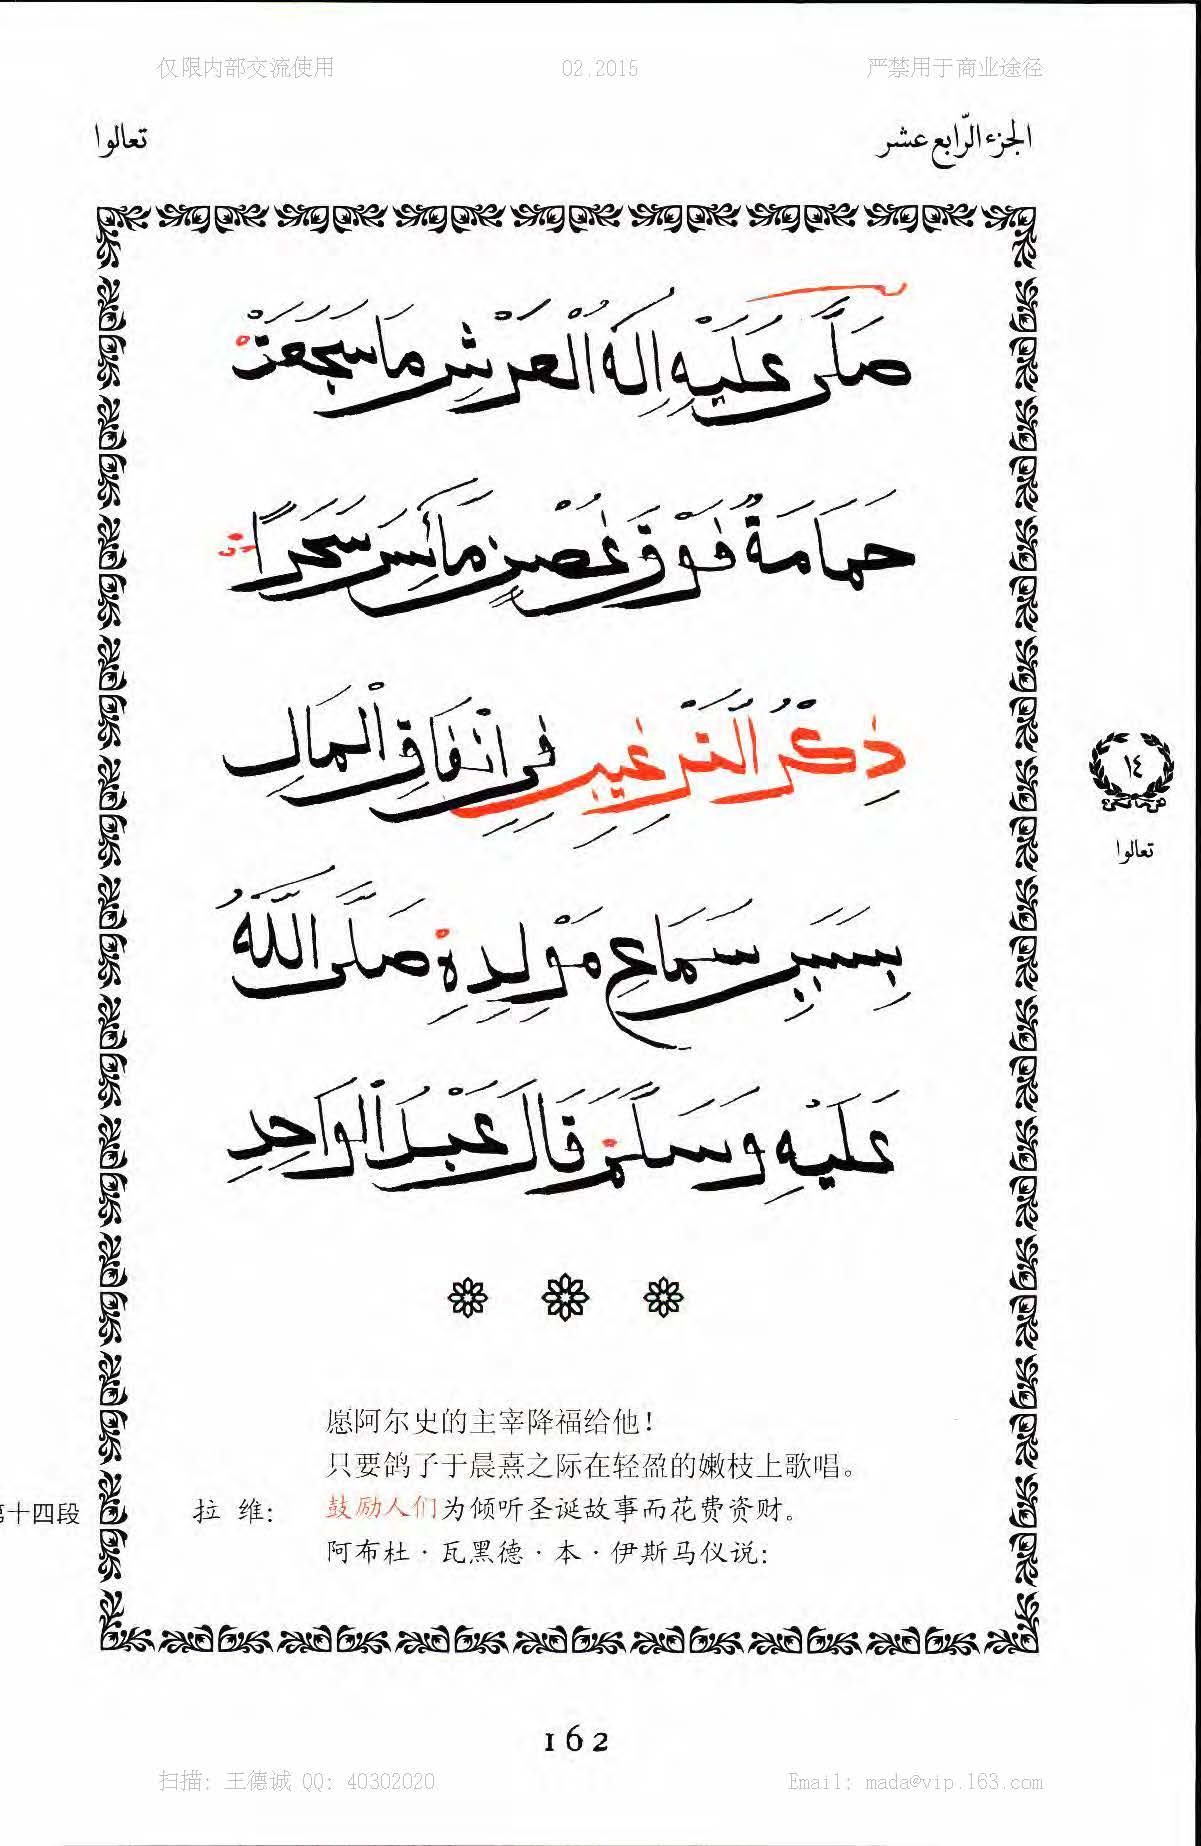 仅限内部交流使用 02.2015 严禁用于商业途径
الجزء الرّابع عشر تعالوا
صَلَّى عَلَيْهِ اِلٰهُ الْعَرْشِ مَا سَجَعَتْ
حَمَامَةٌ فَوْقَ غُصْنٍ مَائِسَ سَحَرًا
ذِكْرُ التَّرْغِيبِ فِى اِنْفَاقِ الْمَالِ
بِسَبَبِ سَمَاعِ مَوْلِدِهِ صَلَّى اللَّهُ
عَلَيْهِ وَسَلَّمَ قَالَ عَبْدُ الْوَاحِدِ
١٤
تعالوا
愿阿尔史的主宰降福给他！
只要鸽子于晨熹之际在轻盈的嫩枝上歌唱。
第十四段 拉 维： 鼓励人们为倾听圣诞故事而花费资财。
阿布杜·瓦黑德·本·伊斯马仪说：
162
扫描：王德诚 QQ：40302020 Email：mada@vip.163.com